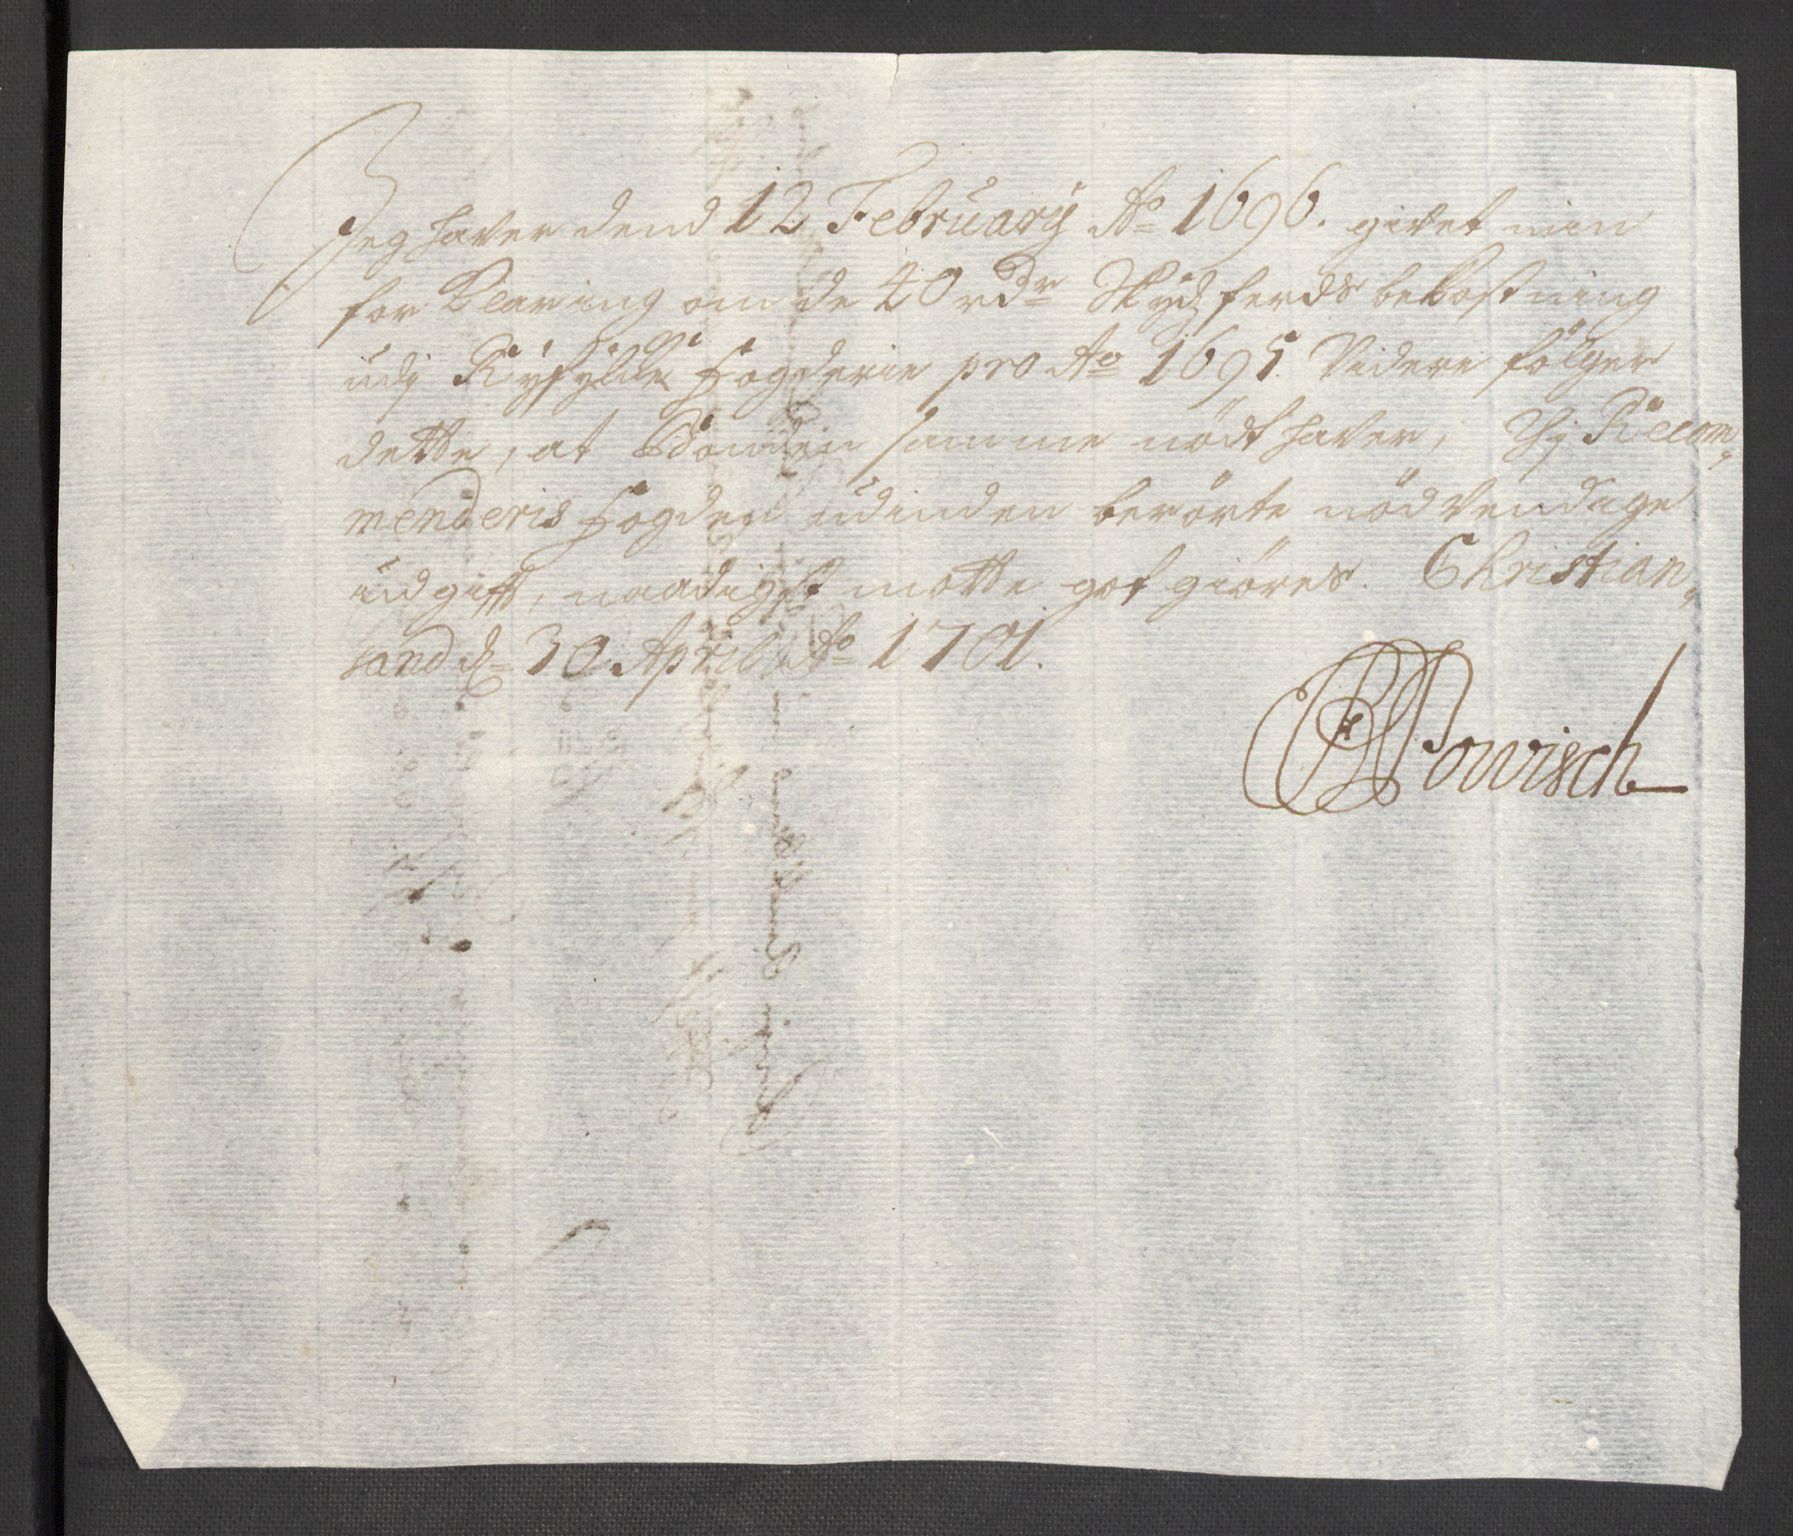 Jeg haver dend 12 February Ao 1696. givet min
for Klaring om de 40 rdr Skydsferds bekostning
udj Ryfylke fogderie pro Ao 1695. Videre følger
dette, at samme nødt haver, Thj Recom,
menderis fogden udinden berørte nødvendige
udgifft, naadigst motte got giøres. Christian,
sand d. 30 April Ao 1701.
Powisch